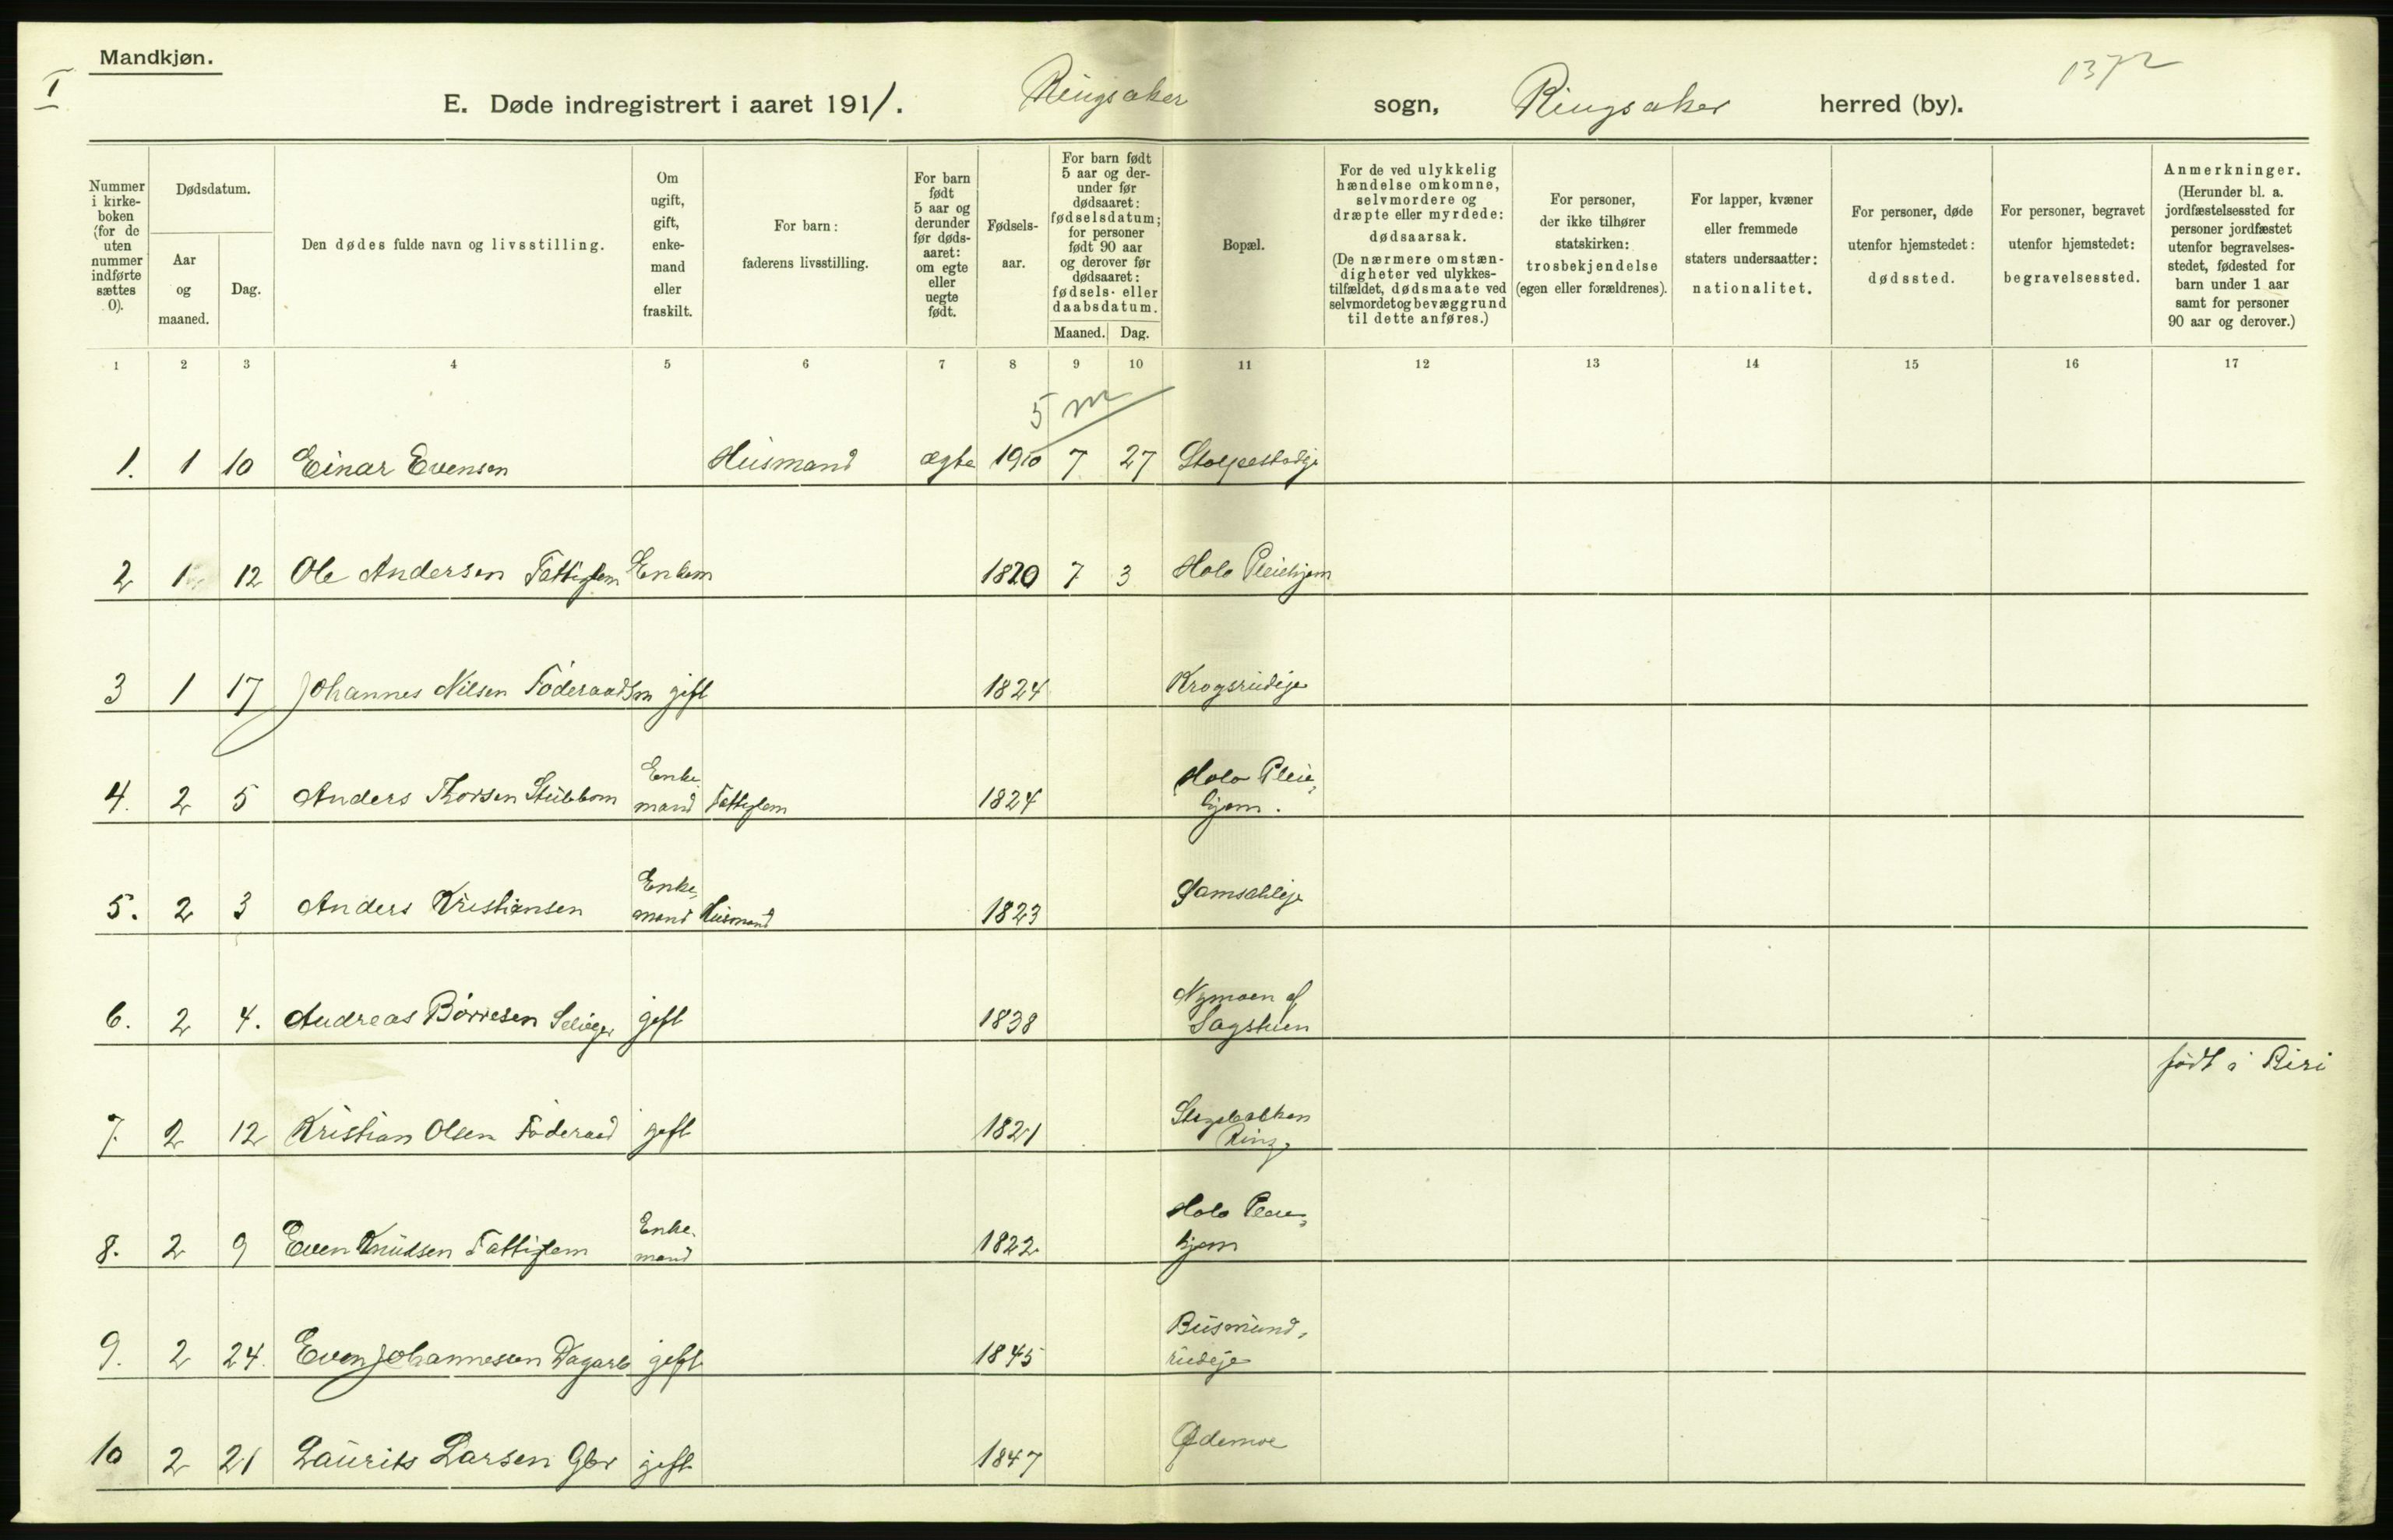 Mandkjøn.
I
1372
E. Døde indregistrert i aaret 1911. Ringsaker sogn, Ringsaker herred (by).
Nummer i kirke-boken (for de uten nummer indførte sættes 0).
Dødsdatum.
Aar og maaned.
Dag.
Den dødes fulde navn og livsstilling.
Om ugift, gift, enke-mand eller fraskilt.
For barn: faderens livsstilling.
For barn født 5 aar og derunder før døds-aaret: om egte eller uegte født.
Fødsels-aar.
For barn født 5 aar og der-under før dødsaaret: fødselsdatum; for personer født 90 aar og derover før dødsaaret: fødsels- eller daabsdatum.
Maaned. Dag.
Bopæl.
For de ved ulykkelig hændelse omkomne, selvmordere og dræpte eller myrdede: dødsaarsak. (De nærmere omstæn-digheter ved ulykkes-tilfældet, dødsmaate ved selvmordet og bevæggrund til dette anføres.)
For personer, der ikke tilhører statskirken: trosbekjendelse (egen eller forældrenes).
For lapper, kvæner eller fremmede staters undersaatter: nationalitet.
For personer, døde utenfor hjemstedet: dødssted.
For personer, begravet utenfor hjemstedet: begravelsessted.
Anmerkninger. (Herunder bl. a. jordfæstelsessted for personer jordfæstet utenfor begravelses-stedet, fødested for barn under 1 aar samt for personer 90 aar og derover.)
1 2 3 4 5 6 7 8 9 10 11 12 13 14 15 16 17
5 m
1. 1 10 Einar Evensen Husmand ægte 1910 7 27
2 1 12 Ole Andersen Fattiglem Enkem 1820 7 3 Holo Pleiehjem
3 1 17 Johannes Nilsen Føderaadsm gift 1824 Krogsrudeje
4. 2 5 Anders Thorsen Stubbom Enke mand Fattiglem 1824 Holo Pleie-hjem.
5. 2 3 Anders Kristiansen Enke-mand Husmand 1823
6. 2 4. Andreas Børresen Selveger gift 1838 Nymoen af Sagstuen
født i Biri
7. 2 12 Kristian Olsen Føderaad gift 1821 Ring.
8. 2 9 Even Knudsen Fattiglem Enke-mand 1822 Holo Pleie-hjem
9. 2 24. Even Johannesen Dagarb gift 1845 Busmund-rudeje
10 2 21 Laurits Larsen Gbr gift 1847 Ødemoe